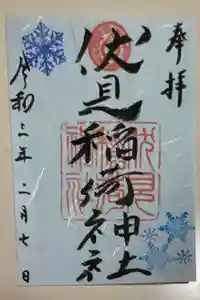 奉拝
伏見稲荷神社
令和三年二月七日